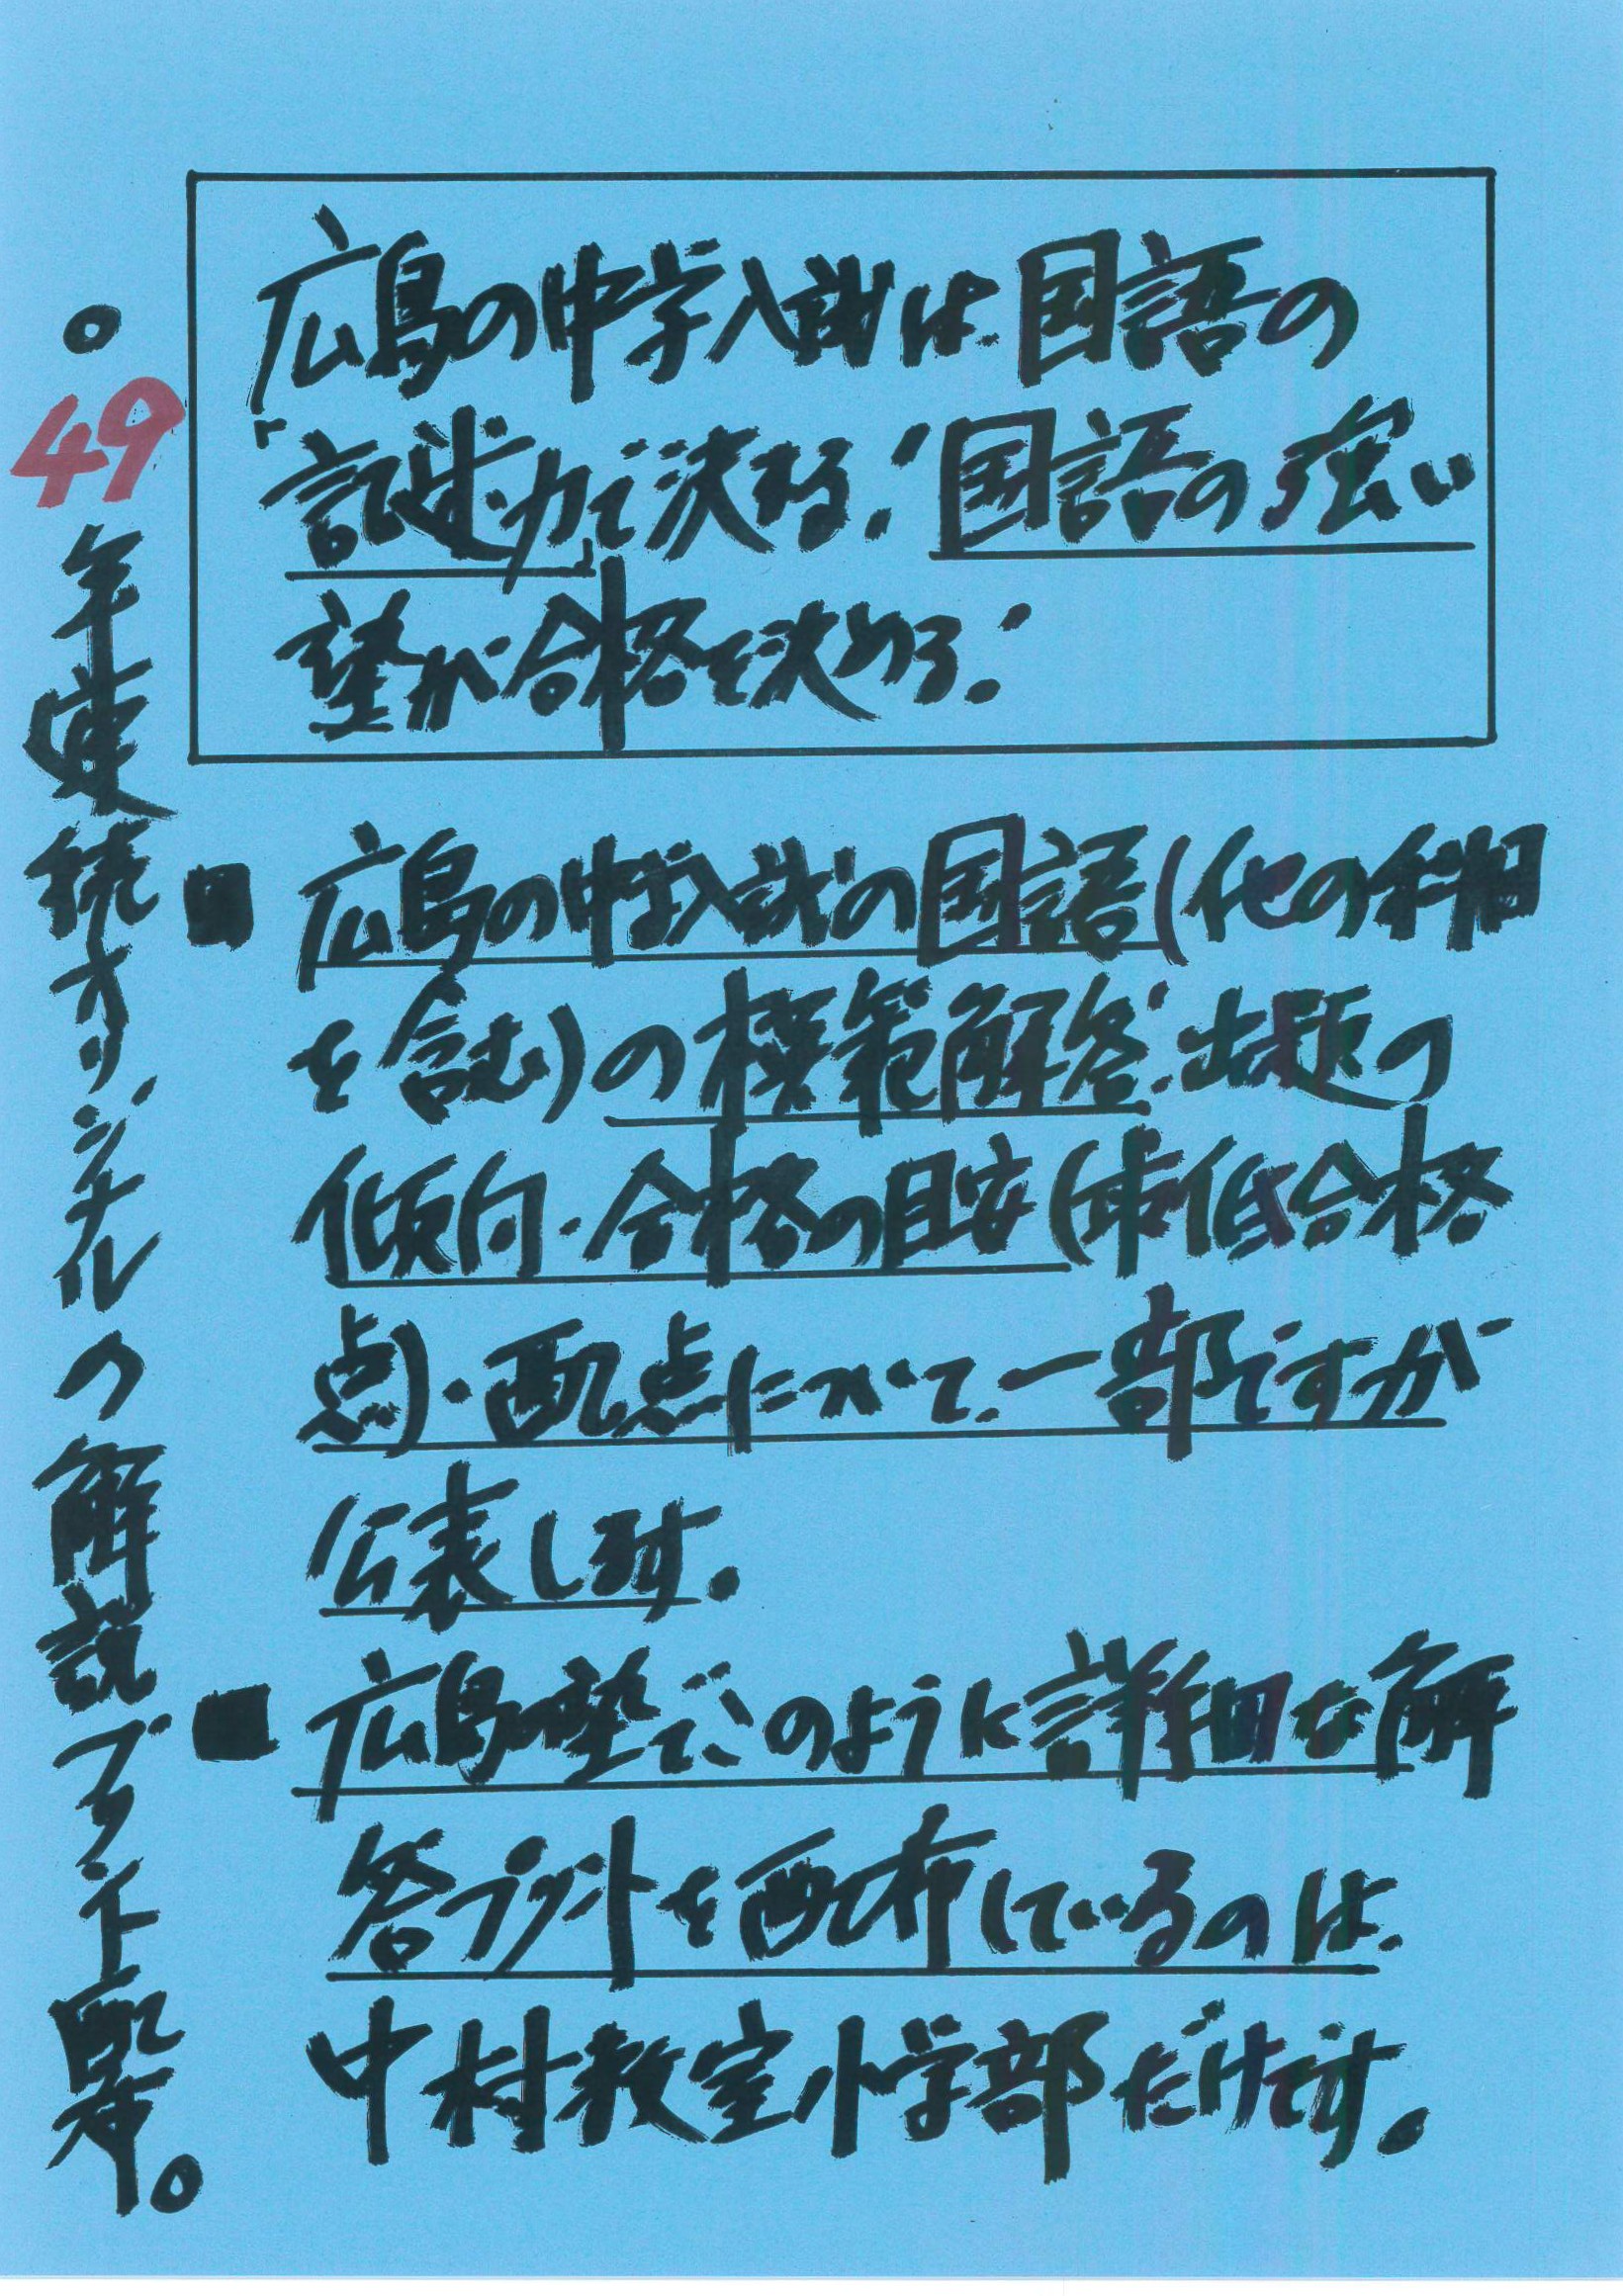 広島の中学入試は、国語の
「記述力」で決まる！国語の強い
塾が合格を決める！
■広島の中学入試の国語(他の科目
を含む)の模範解答・出題の
傾向・合格の目安(最低合格
点)・配点について、一部ですが
公表します。
■広島の塾で、このように詳細な解
答プリントを配布しているのは、
中村教室小学部だけです。
○49年連続オリジナルの解説プリント配布。